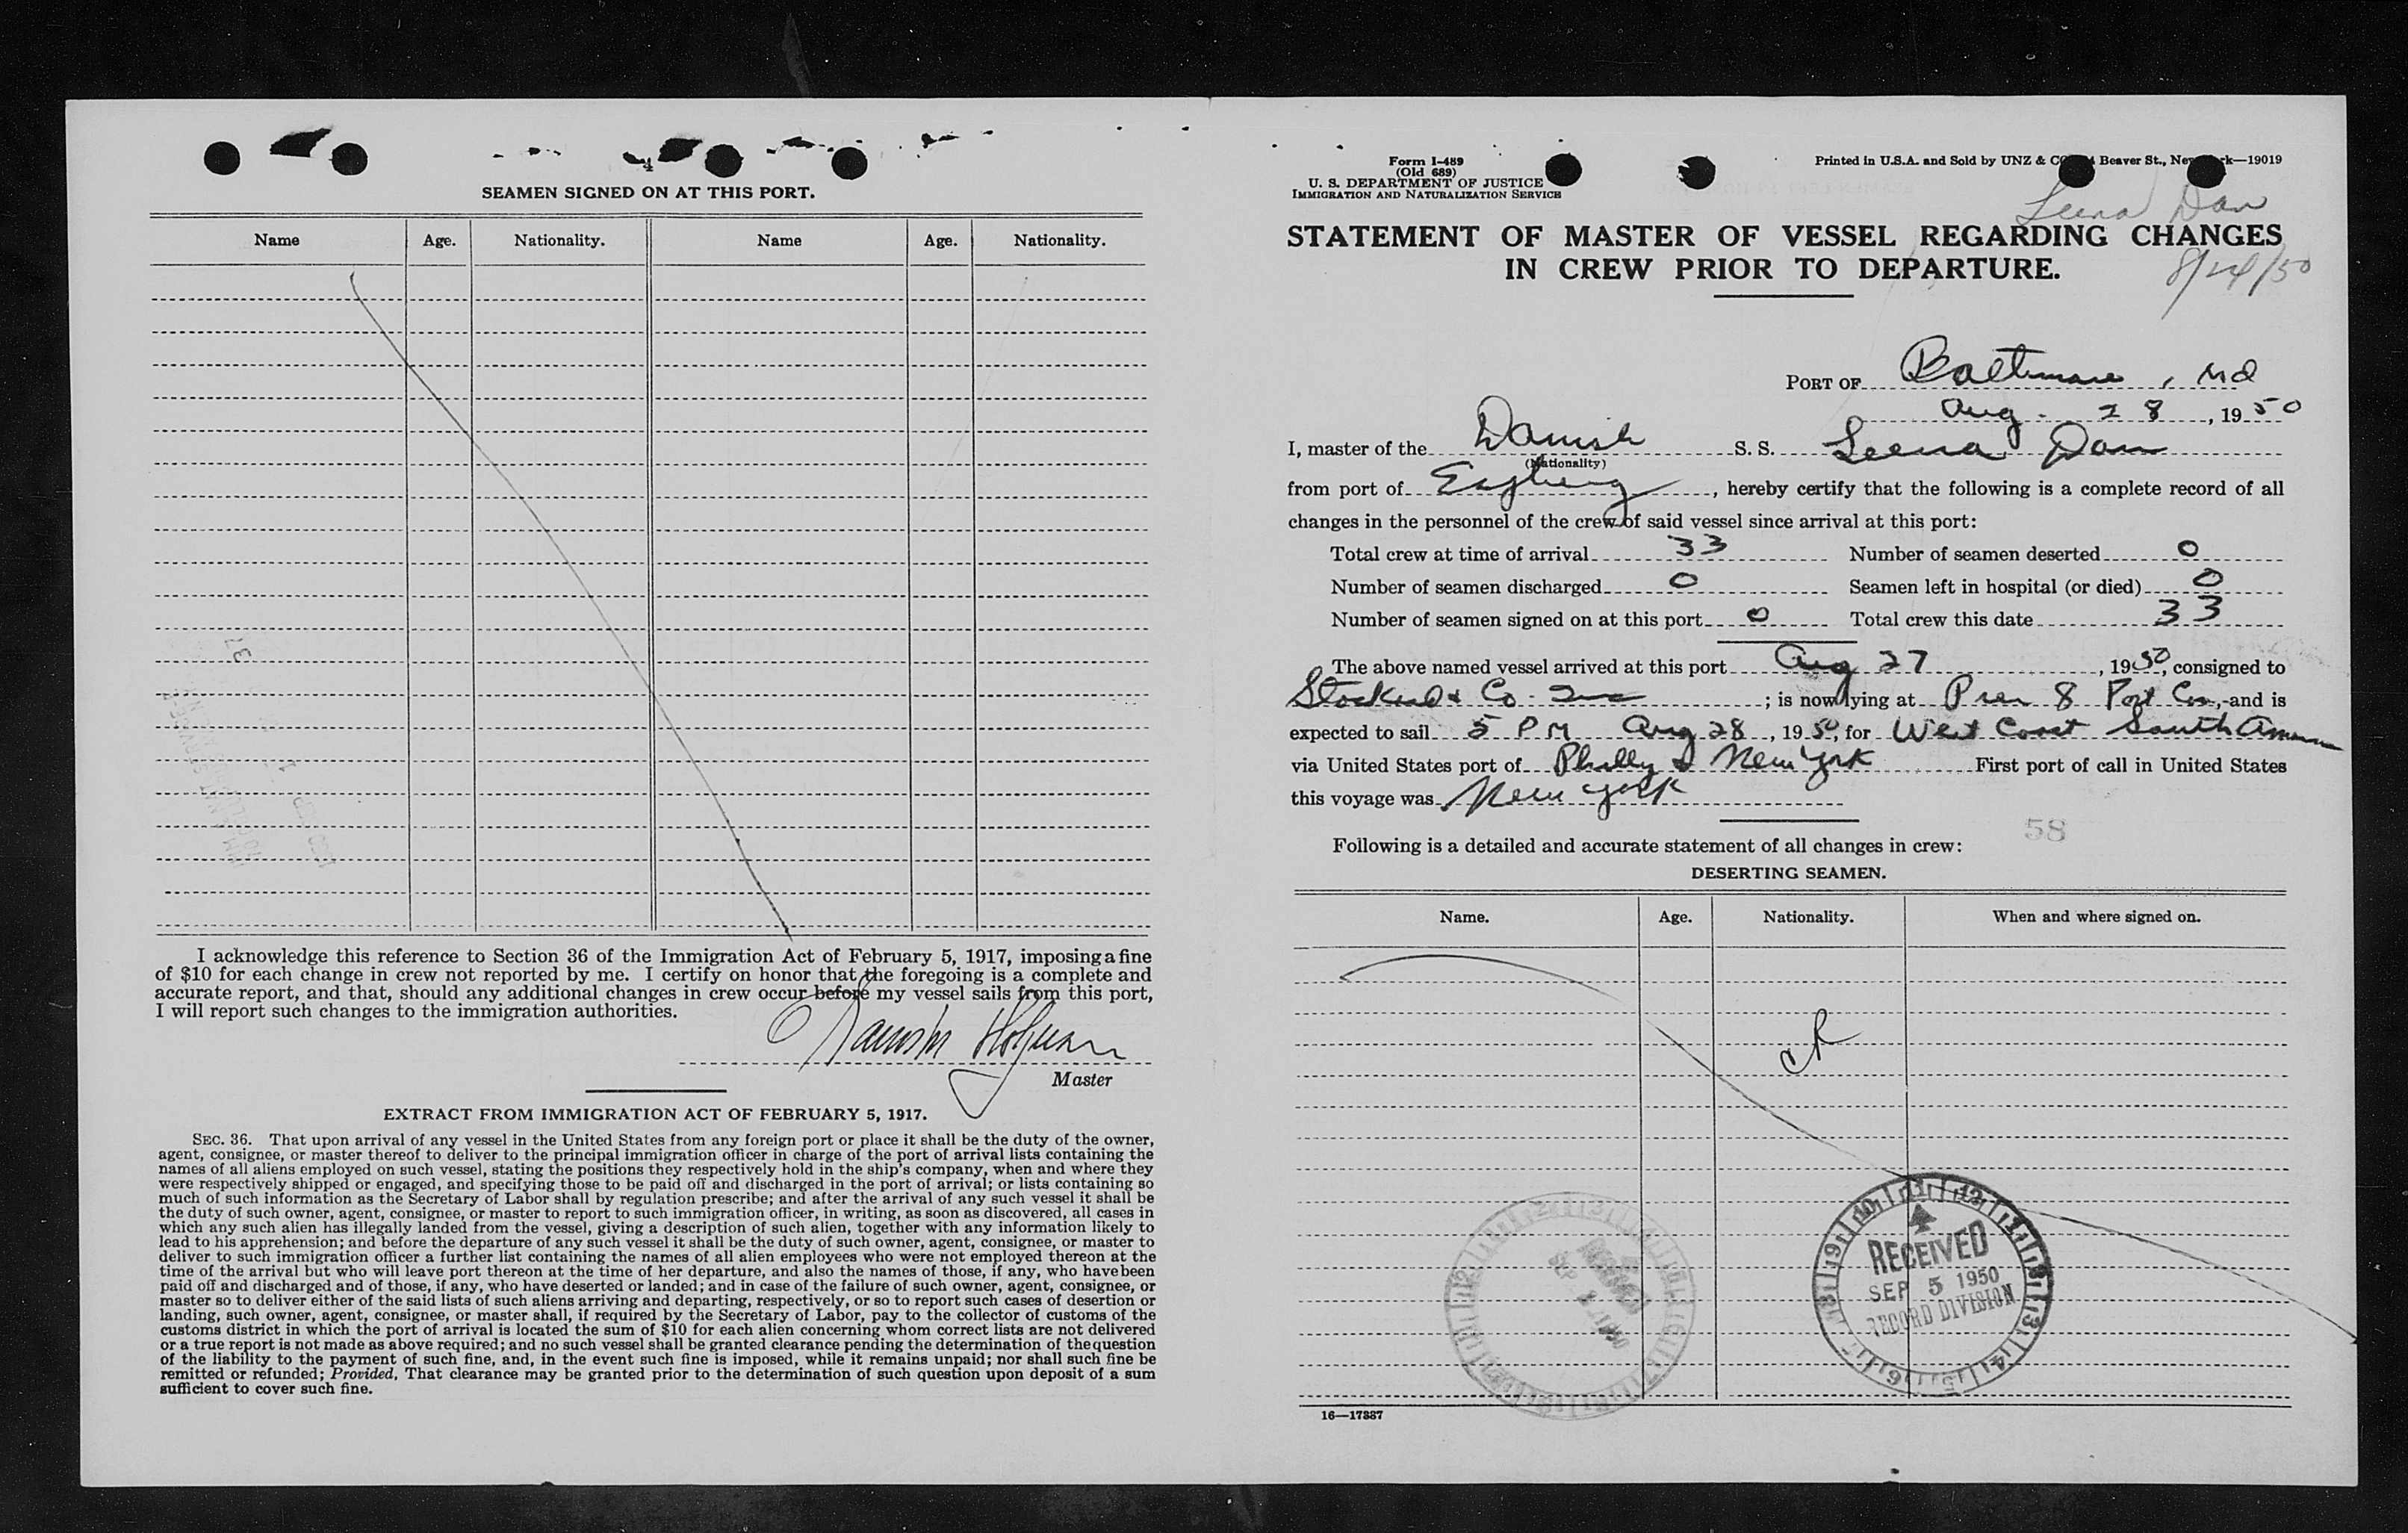 4
SEAMEN SIGNED ON AT THIS PORT.
Name Age. Nationality. Name Age. Nationality.
I acknowledge this reference to Section 36 of the Immigration Act of February 5, 1917, imposing a fine
of $10 for each change in crew not reported by me. I certify on honor that the foregoing is a complete and
accurate report, and that, should any additional changes in crew occur before my vessel sails from this port,
I will report such changes to the immigration authorities.
Master
EXTRACT FROM IMMIGRATION ACT OF FEBRUARY 5, 1917.
SEC. 36. That upon arrival of any vessel in the United States from any foreign port or place it shall be the duty of the owner,
agent, consignee, or master thereof to deliver to the principal immigration officer in charge of the port of arrival lists containing the
names of all aliens employed on such vessel, stating the positions they respectively hold in the ship's company, when and where they
were respectively shipped or engaged, and specifying those to be paid off and discharged in the port of arrival; or lists containing so
much of such information as the Secretary of Labor shall by regulation prescribe; and after the arrival of any such vessel it shall be
the duty of such owner, agent, consignee, or master to report to such immigration officer, in writing, as soon as discovered, all cases in
which any such alien has illegally landed from the vessel, giving a description of such alien, together with any information likely to
lead to his apprehension; and before the departure of any such vessel it shall be the duty of such owner, agent, consignee, or master to
deliver to such immigration officer a further list containing the names of all alien employees who were not employed thereon at the
time of the arrival but who will leave port thereon at the time of her departure, and also the names of those, if any, who have been
paid off and discharged and of those, if any, who have deserted or landed; and in case of the failure of such owner, agent, consignee, or
master so to deliver either of the said lists of such aliens arriving and departing, respectively, or so to report such cases of desertion or
landing, such owner, agent, consignee, or master shall, if required by the Secretary of Labor, pay to the collector of customs of the
customs district in which the port of arrival is located the sum of $10 for each alien concerning whom correct lists are not delivered
or a true report is not made as above required; and no such vessel shall be granted clearance pending the determination of the question
of the liability to the payment of such fine, and, in the event such fine is imposed, while it remains unpaid; nor shall such fine be
remitted or refunded; Provided, That clearance may be granted prior to the determination of such question upon deposit of a sum
sufficient to cover such fine.
Form I-489
(Old 689)
U. S. DEPARTMENT OF JUSTICE
IMMIGRATION AND NATURALIZATION SERVICE
Printed in U.S.A. and Sold by UNZ & Beaver St., —19019
Leena Dan
STATEMENT OF MASTER OF VESSEL REGARDING CHANGES
IN CREW PRIOR TO DEPARTURE.
8/24/50
PORT OF Baltimore, Md
Aug. 28, 1950
I, master of the Danish S. S. Leena Dan
(Nationality)
from port of Esjberg, hereby certify that the following is a complete record of all
changes in the personnel of the crew of said vessel since arrival at this port:
Total crew at time of arrival 33 Number of seamen deserted 0
Number of seamen discharged 0 Seamen left in hospital (or died) 0
Number of seamen signed on at this port 0 Total crew this date 33
The above named vessel arrived at this port Aug 27, 1950, consigned to
Stockard & Co. Inc; is now lying at Pier 8 Port Cov, and is
expected to sail 5 PM Aug 28, 1950, for West Coast South Amer
via United States port of Philly & New York First port of call in United States
this voyage was New York
58
Following is a detailed and accurate statement of all changes in crew:
DESERTING SEAMEN.
Name. Age. Nationality. When and where signed on.
RECEIVED
SEP 5 1950
RECORD DIVISION
16—17887